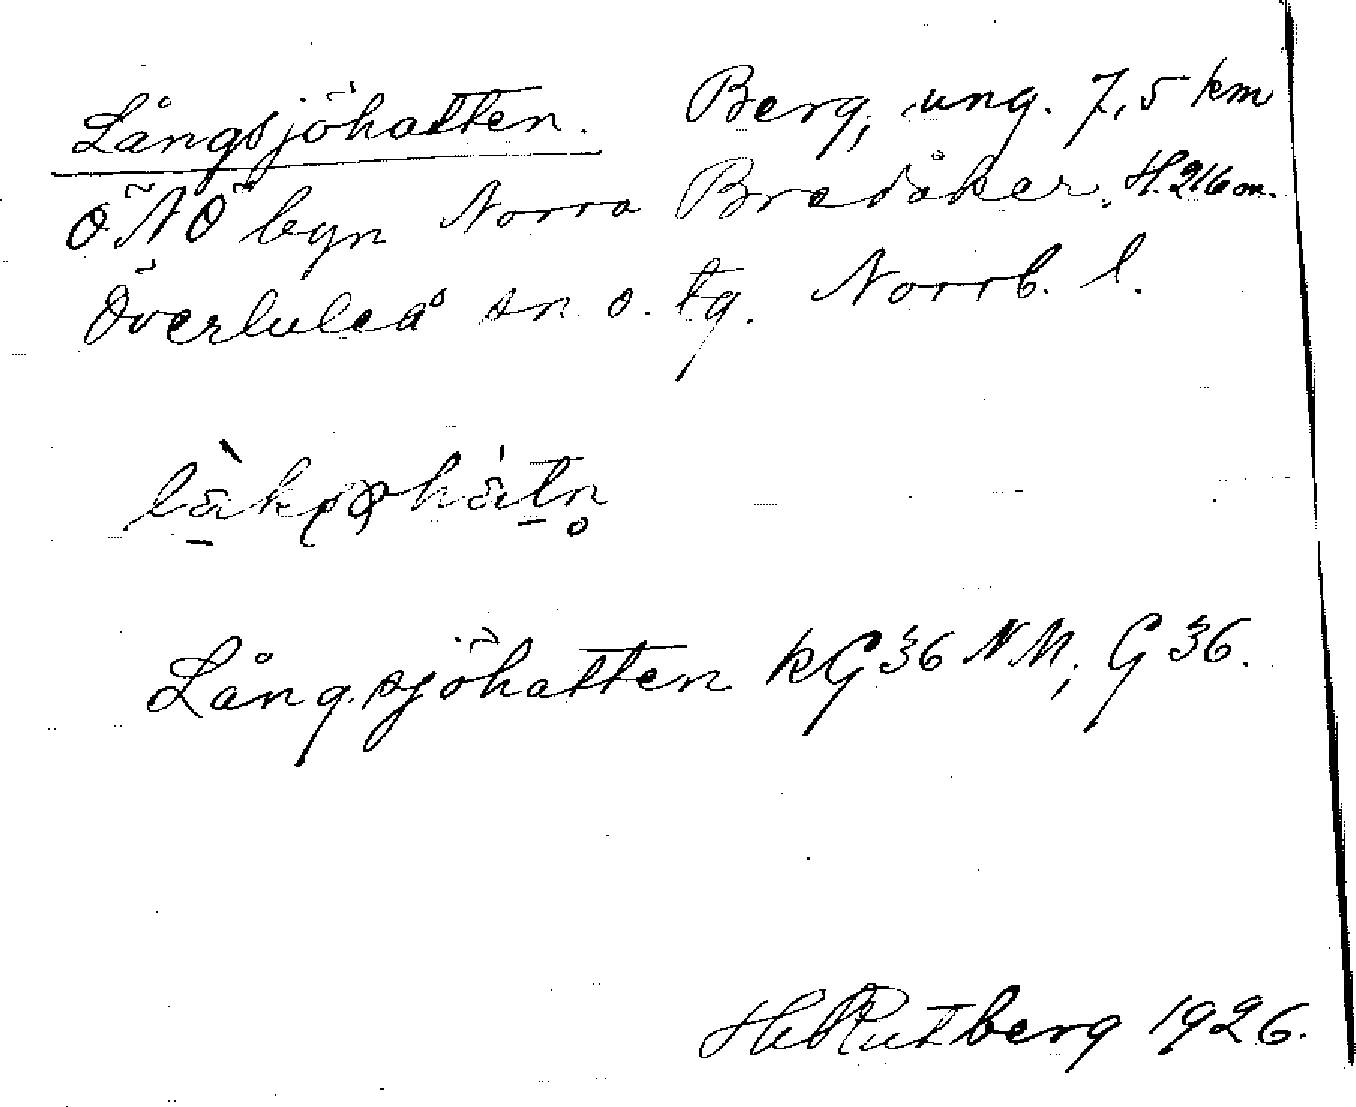 Långsjöhatten. Berg, ung. 7,5 km
ÖNÖ byn Norra Bredåker. H. 216 m.
Överluleå sn o. tg. Norrb. l.
Långsjöhatten kG 36 NM, G 36.
H. Rutberg 1926.